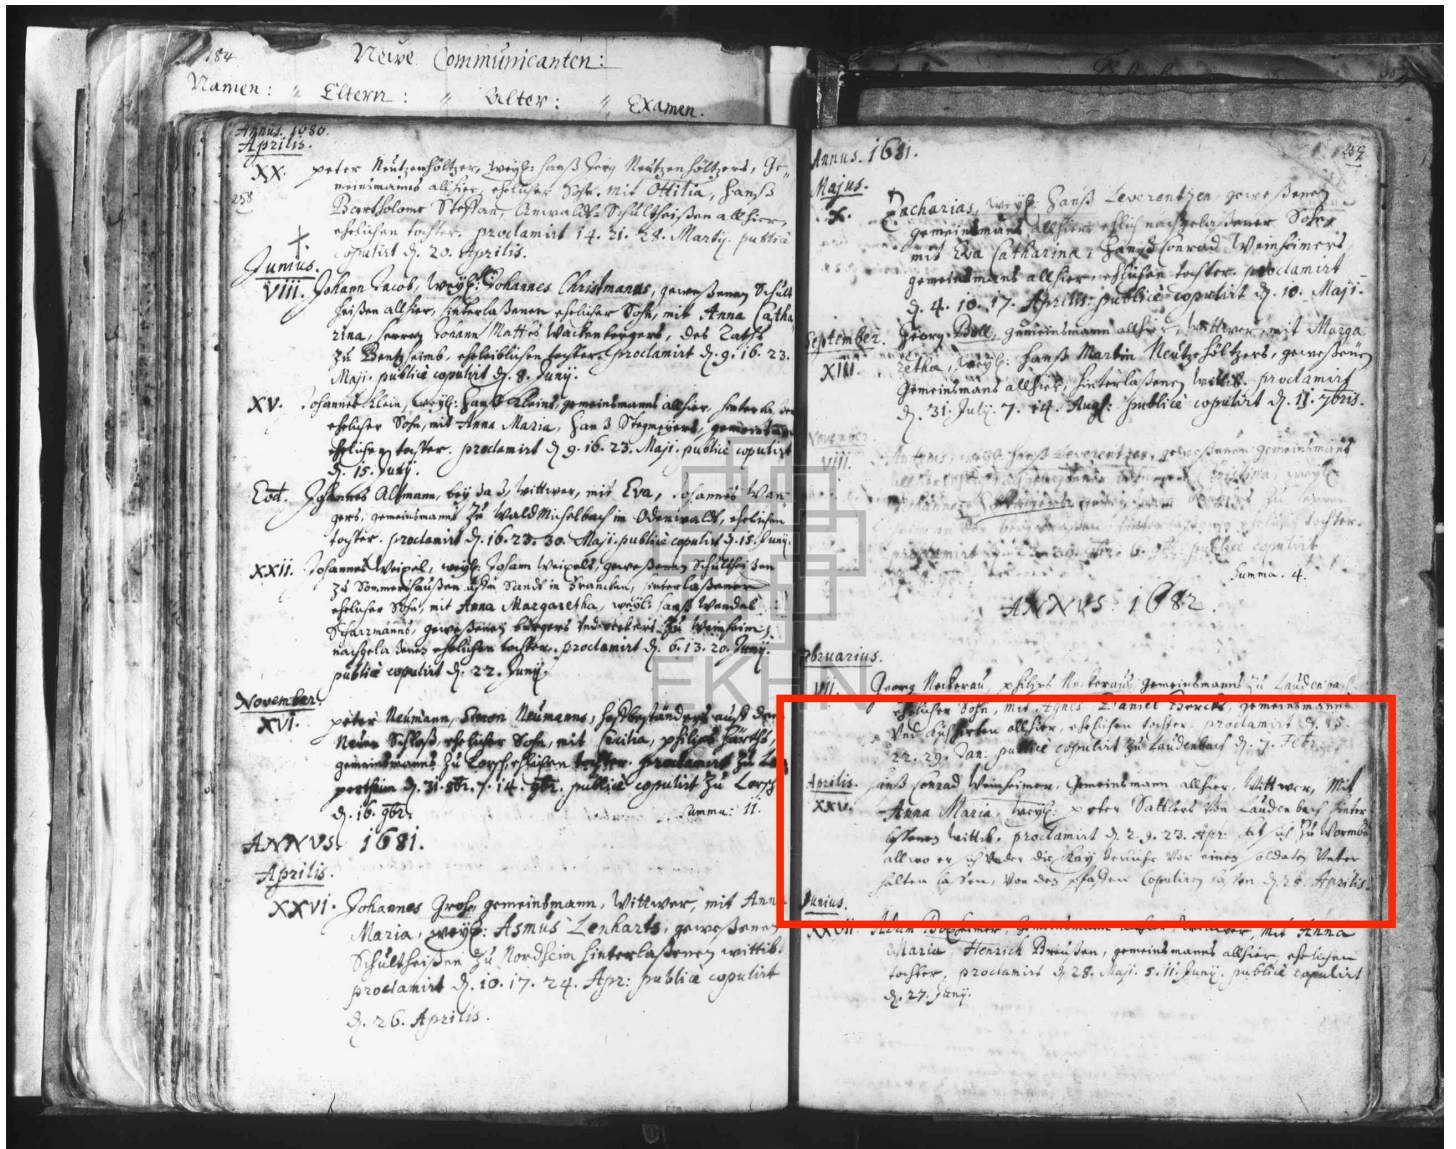 184
Newe Communicanten:
Namen: " Eltern: " Alter: " Examen.
Annus. 1680.
Aprilis.
XX. peter Neützenhöltzer, weyl: Hanß Jerg Neützenhöltzers, Ge-
meinsmanns allhier, ehelicher Sohn, mit Ottilia, Hanß
258
Bartholome Stephan, Anwaldt-Schultheißen allhier,
ehelichen tochter. proclamirt 14. 21. 28. Martij. publicè
copulirt d. 20. Aprilis.
Junius.
VIII. Johann Jacob, weyl: Johannes Christmanns, geweßenen Schult
heißen allhier, hinterlaßener ehelicher Sohn, mit Anna Catha
rina, Herrn Johann Mattes Wackenbergers, des Raths
zu Bentzheimb, eheleiblichen tochter. proclamirt d. 9. 16. 23.
Maji. publicè copulirt d. 8. Junij.
XV. Johannes Klein, weyl: Hanß Kleins, gemeinsmanns allhier, hinterlaßener
ehelicher Sohn, mit Anna Maria, Hanß Stegmeyers, gemeinsmanns
ehelichen tochter. proclamirt d. 9. 16. 23. Maji. publicè copulirt
d. 15. Junij.
Eod. Johannes Altmann, wittwer, mit Eva, Johannes Wan-
gers, gemeinsmanns zu WaldMichelbach im Odenwaldt, ehelichen
tochter. proclamirt d. 16. 23. 30. Maji. publicè copulirt d. 15. Junij.
XXII. Johannes Weipel, weyl: Johann Weipels, geweßenen Schultheißen
zu Sommerhaußen in Francken, hinterlaßener
ehelicher Sohn, mit Anna Margaretha, weyl: Hanß Wendel
geweßenen bürgers zu Weinheim,
nachgelaßenen ehelichen tochter. proclamirt d. 6. 13. 20. Junij.
publicè copulirt d. 22. Junij.
November.
XVI. peter Neumann, Simon Neumanns, Hofbeständers auß dem
Neuen Schloß, ehelicher Sohn, mit Cecilia, philips
gemeinsmanns zu Lorsch, ehelichen tochter. proclamirt zu Lam
pertheim d. 31. 8br. 7. 14. 9br. publicè copulirt zu Lorsch
d. 16. 9br.
Summa: 11.
ANNVS. 1681.
Aprilis.
XXVI. Johannes Groß, gemeinsmann, Wittwer, mit Anna
Maria, weyl: Asmus Lenharts, geweßenen
Schultheißen zu Nordheim hinterlaßenen wittib.
proclamirt d. 10. 17. 24. Apr: publicè copulirt
d. 26. Aprilis.
259
Annus. 1681.
Majus.
X. Zacharias, weyl: Hanß Leverentzen, geweßenen
gemeinsmans allhier ehlich nachgelaßener Sohn,
mit Eva Catharina, Hanß Conrad Weinheimers,
gemeinsmans allhier, ehlichen tochter. proclamirt
d. 4. 10. 17. Aprilis. publicè copulirt d. 10. Maji.
September.
XIII. Georg Boll, gemeinsmann allhier, wittwer, mit Marga
retha, weyl: Hanß Martin Neutzehöltzers, geweßenen
Gemeinsmans allhier, hinterlaßenen wittib. proclamirt
d. 31. July. 7. 14. Aug: publicè copulirt d. 13. 7bris.
November.
VIII. weyl: Hanß Leverentzen, geweßenen gemeinsmanns
tochter.
proclamirt d. 23. 30. 8br: 6. 9br: publicè copulirt
Summa. 4.
ANNVS. 1682.
Februarius.
VII. Georg Neckerau, philips Neckeraus gemeinsmanns zu Laudenbach
ehelicher Sohn, mit Agnes, Daniel gemeinsmanns
allhier, ehelichen tochter. proclamirt d. 15.
22. 29. Jan: publicè copulirt zu Laudenbach d. 7. Febr.
Aprilis.
XXV. Hanß Conrad Weinheimer, Gemeinsmann allhier, Wittwer, Mit
Anna Maria, weyl: peter Sattlers von Laudenbach hinter
laßenen wittib, proclamirt d. 2. 9. 23. Apr: hat sich zu Wormbs
allwo er sich under die vor einen Soldaten Unter
halten laßen, von den pfaffen copuliren laßen d. 25. Aprilis.
Junius.
XXVII. Adam Boxheimer, Gemeinsmann allhier, wittwer, mit Anna
Maria, Henrich gemeinsmanns allhier, ehlichen
tochter, proclamirt d. 28. Maji. 5. 11. Junij. publicè copulirt
d. 27. Junij.
EKHN